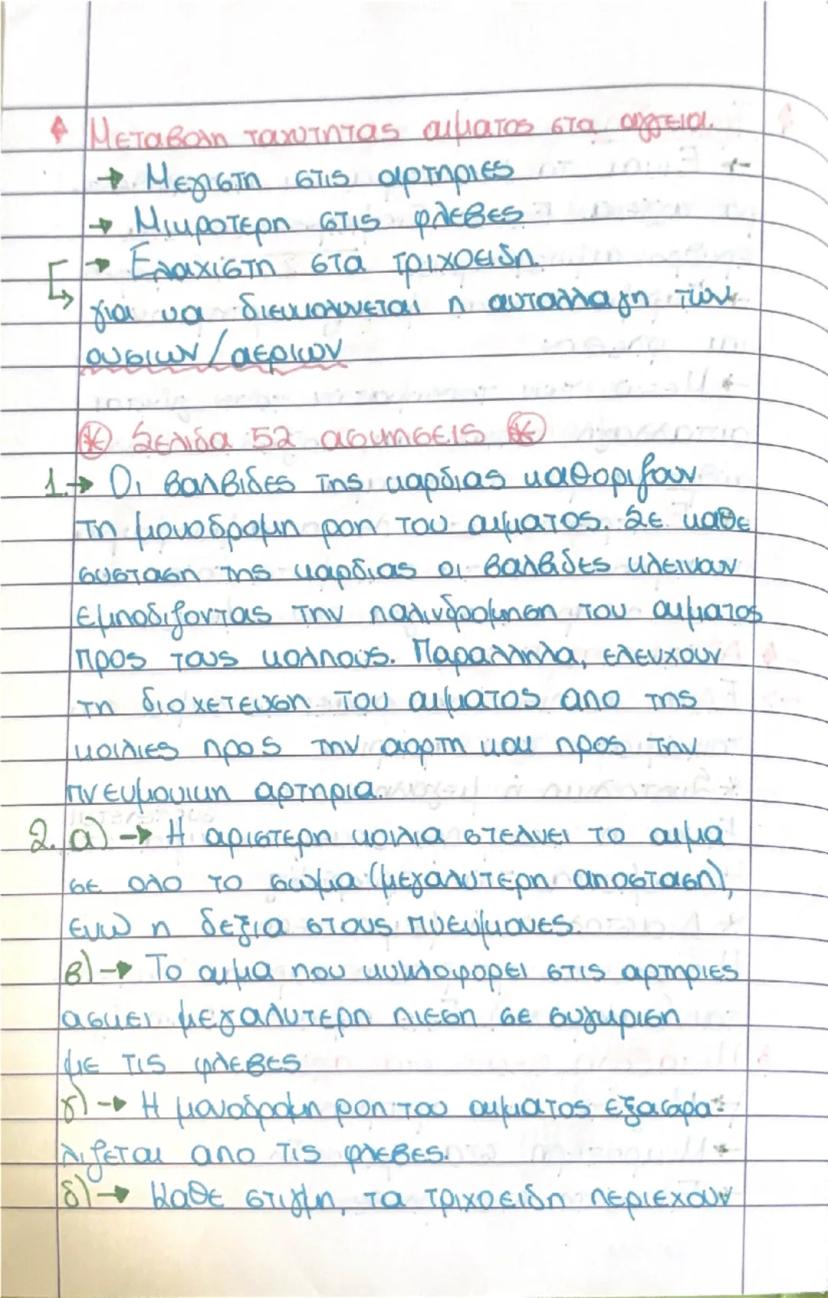 Μεταβολη ταχυτητας αιματος στα αγγεια.
→ Μεγιστη στις αρτηριες
→ Μικροτερη στις φλεβες
→ Ελαχιστη στα τριχοειδη
για να διευκολυνεται η ανταλλαγη των
ουσιων/αεριων
* Σελιδα 52 ασκησεις *
1.→ Οι βαλβιδες της καρδιας καθοριζουν
τη μονοδρομη ροη του αιματος. Σε καθε
συσταση της καρδιας οι βαλβιδες κλεινουν
εμποδιζοντας την παλινδρομηση του αιματος
προς τους κολπους. Παραλληλα, ελευχουν
τη διοχετευση του αιματος απο της
κοιλιες προς την αορτη και προς την
πνευμονικη αρτηρια.
2. α) → Η αριστερη κοιλια στελνει το αιμα
σε ολο το σωμα (μεγαλυτερη αποσταση),
ενω η δεξια στους πνευμονες.
β) → Το αιμα που κυκλοφορει στις αρτηριες
ασκει μεγαλυτερη πιεση σε συγκριση
με τις φλεβες
γ) → Η μονοδρομη ροη του αιματος εξασφα-
λιζεται απο τις φλεβες.
δ) → Καθε στιγμη, τα τριχοειδη περιεχουν